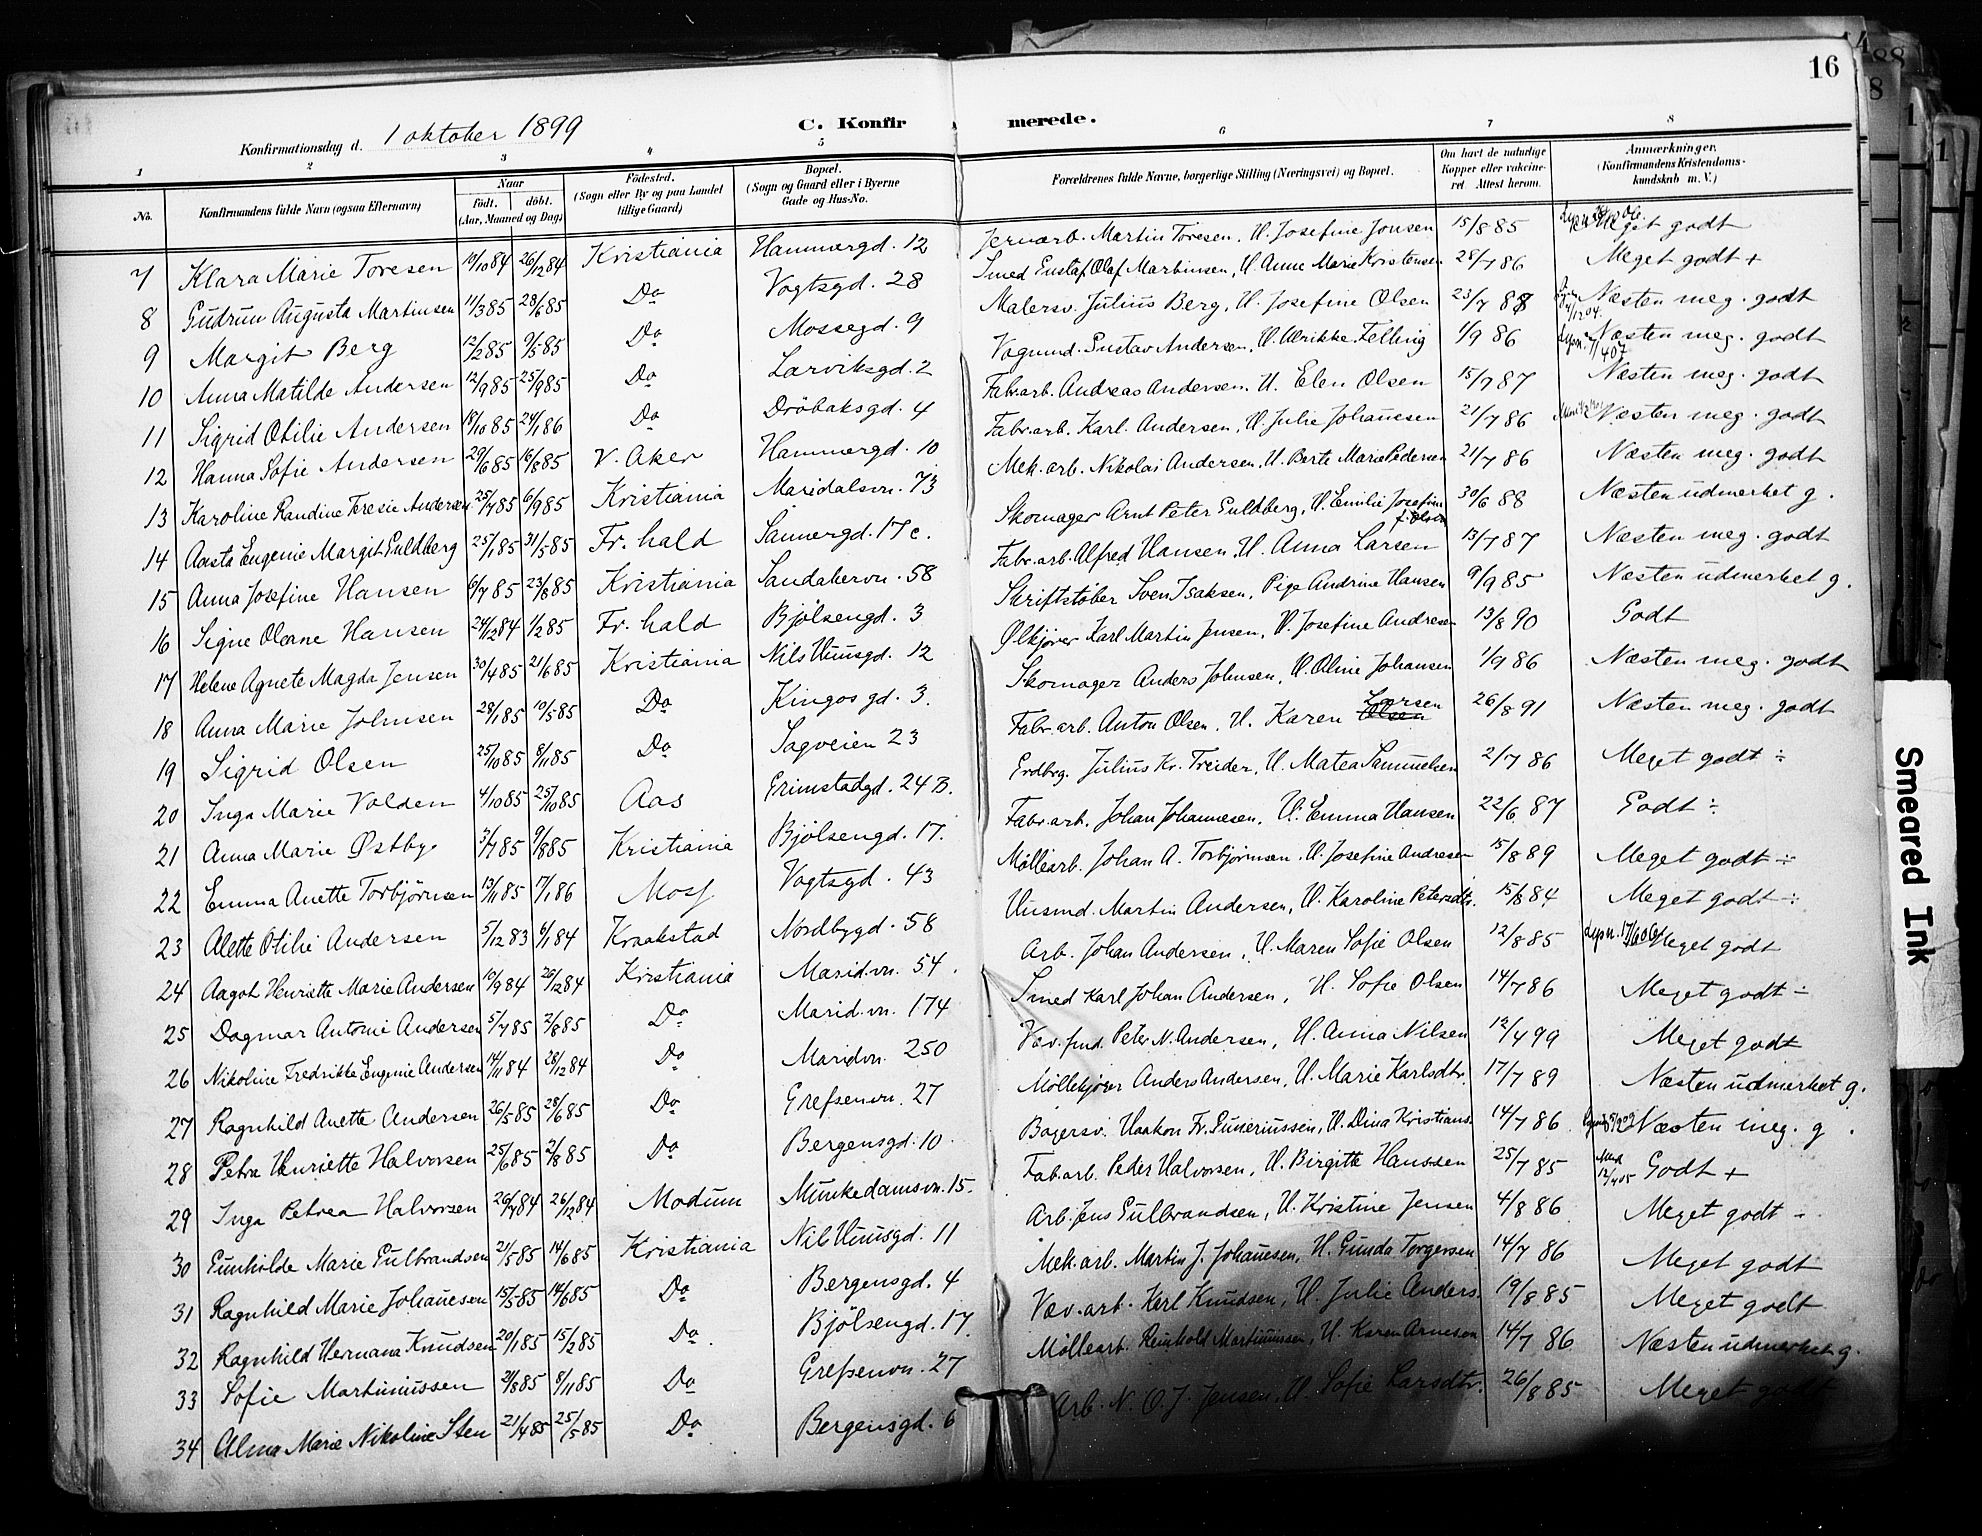 16
Konfirmationsdag d. 1 oktober 1899 C. Konfirmerede.
1 2 3 4 5 6 7 8
No. Konfirmandens fulde Navn (ogsaa Efternavn) Naar født. døbt. (Aar, Maaned og Dag) Födested. (Sogn eller By og paa Landet tillige Gaard) Bopæl. (Sogn og Gaard eller i Byerne Gade og Hus-No. Forældrenes fulde Navne, borgerlige Stilling (Næringsvei) og Bopæl. Om havt de naturlige Kopper eller vakcineret. Attest herom. Anmærkninger. (Konfirmandens Kristendomskundskab m. V.)
7 Klara Marie Toresen 19/10 84 26/12 84 Kristiania Hammergd. 12 Jernarb. Martin Toresen, H. Josefine Jonsen 15/8 85 Meget godt
8 Gudrun Augusta Martinsen 11/3 85 28/6 85 Do Vogtsgd. 28 Smed Gustaf Olaf Martinsen, H. Anne Marie Kristensen 28/7 86 Meget godt +
9 Margit Berg 12/2 85 9/5 85 Do Mossegd. 9 Malersv. Julius Berg, H. Josefine Olsen 23/7 88 Næsten meg. godt
10 Anna Matilde Andersen 12/9 85 25/9 85 Do Larviksgd. 2 Vognmd. Gustav Andersen, H. Ulrikke Felling 1/9 86 Næsten meg. godt
11 Sigrid Otilie Andersen 18/10 85 24/1 86 Do Dröbaksgd. 4 Fabr.arb. Andreas Andersen, H. Elen Olsen 15/7 87 Næsten meg. godt
12 Hanna Sofie Andersen 29/6 85 16/8 85 V. Aker Hammergd. 10 Fabr.arb. Karl Andersen, H. Julie Johanesen 21/7 86 Næsten meg. godt
13 Karoline Randine Teresie Andersen 25/7 85 6/9 85 Kristiania Maridalsvn. 73 Mek. arb. Nikolai Andersen, H. Berte Marie Pedersen 21/7 86 Næsten meg. godt
14 Aasta Eugenie Margit Guldberg 25/1 85 31/5 85 Fr. hald Sannergd. 17 c. Skomager Arnt Peter Guldberg, H. Emilie Josefine f. Olsen 30/6 88 Næsten udmerket g.
15 Anna Josefine Hansen 6/7 85 23/8 85 Kristiania Sandakervn. 58 Fabr.arb. Alfred Hansen, H. Anna Larsen 13/7 87 Næsten meg. godt
16 Signe Oleane Hansen 24/12 84 1/2 85 Fr. hald Bjölsengd. 3 Skriftstøber Sven Isaksen, Pige Andrine Hansen 9/9 85 Næsten udmerket g.
17 Helene Agnete Magda Jensen 30/4 85 21/6 85 Kristiania Nils Huusgd. 12 Ølkjører Karl Martin Jensen, H. Josefine Andresen 13/8 90 Godt
18 Anna Marie Johnsen 28/1 85 10/5 85 Do Kingosgd. 3. Skomager Anders Johnsen, H. Oline Johansen 1/9 86 Næsten meg. godt
19 Sigrid Olsen 25/10 85 8/11 85 Do Sagveien 23 Fabr. arb. Anton Olsen, H. Karen Olsen Larsen 26/8 91 Næsten meg. godt
20 Inga Marie Volden 4/10 85 25/10 85 Aas Grimstadgd. 24 B. Julius Kr. H. Matea Samuelsen 2/7 86 Meget godt ÷
21 Anna Marie Østby 3/7 85 9/8 85 Kristiania Bjölsengd. 17. Fabr. arb. Johan Johannesen, H. Emma Hansen 22/6 87 Godt ÷
22 Emma Anette Torbjörnsen 13/11 85 17/1 86 Moss Vogtsgd. 43 Møllearb. Johan A. Torbjørnsen, H. Josefine Andresen 15/8 89 Meget godt ÷
23 Alette Otilie Andersen 5/12 83 6/1 84 Kraakstad Nordbygd. 58 Husmd. Martin Andersen, H. Karoline Petersdtr. 15/8 84 Meget godt ÷
24 Aagot Henriette Marie Andersen 10/9 84 26/12 84 Kristiania Marid.vn. 54. Arb. Johan Andersen, H. Maren Sofie Olsen 12/8 85 Meget godt
25 Dagmar Antonie Andersen 5/7 85 2/8 85 Do Marid.vn. 174 Smed Karl Johan Andersen, H. Sofie Olsen 14/7 86 Meget godt ÷
26 Nikoline Fredrikke Eugenie Andersen 14/11 84 28/12 84 Do Maridvn. 250 Væv.fmd. Peter N. Andersen, H. Anna Nilsen 12/4 99 Meget godt
27 Ragnhild Anette Andersen 26/5 85 28/6 85 Do Grefsenvn. 27 Møllekjører Anders Andersen, H. Marie Karlsdtr. 17/7 89 Næsten udmerket g.
28 Petra Henriette Halvorsen 25/6 85 2/8 85 Do Bergensgd. 10. Bagersv. Haakon Fr. H. Dina Kristians. 14/7 86 Næsten meg. g.
29 Inga Petrea Halvorsen 26/7 84 26/12 84 Modum Munkedamsvn. 15. Fab.arb. Peder Halvorsen, H. Birgitte Hanssen 25/7 85 Godt +
30 Gunholde Marie Gulbrandsen 21/5 85 14/6 85 Kristiania Nils Huusgd. 11 Arb. Jens Gulbrandsen, H. Kristine Jensen 4/8 86 Meget godt -
31 Ragnhild Marie Johanesen 15/5 85 14/6 85 Do Bergensgd. 4 Mek. arb. Martin J. Johanesen, H. Gunda Torgersen 14/7 86 Meget godt
32 Ragnhild Hermana Knudsen 20/1 85 15/2 85 Do Bjölsengd. 17. Væv. arb. Karl Knudsen, H. Julie Anders. 19/8 85 Meget godt
33 Sofie Martinussen 2/8 85 8/11 85 Do Grefsenvn. 27 Møllearb. Reinhold Martinussen, H. Karen Arnesen 14/7 86 Næsten udmerket g.
34 Alma Marie Nikoline Sten 21/4 85 25/5 85 Do Bergensgd. 6 Arb. N. O. J. Jensen, H. Sofie Larsdtr. 26/8 85 Meget godt
Smeared Ink